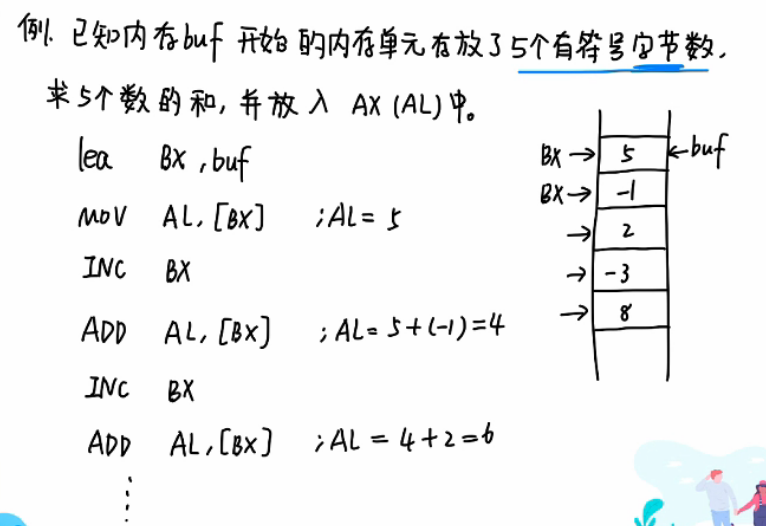 例. 已知内存buf 开始的内存单元存放了5个有符号字节数,
求5个数的和, 并放入 AX (AL)中。
lea BX, buf
MOV AL, [BX] ;AL= 5
INC BX
ADD AL, [BX] ;AL= 5+(-1)=4
INC BX
ADD AL, [BX] ;AL = 4+2=6
⋮
BX→ 5 ←buf
BX→ -1
→ 2
→ -3
→ 8